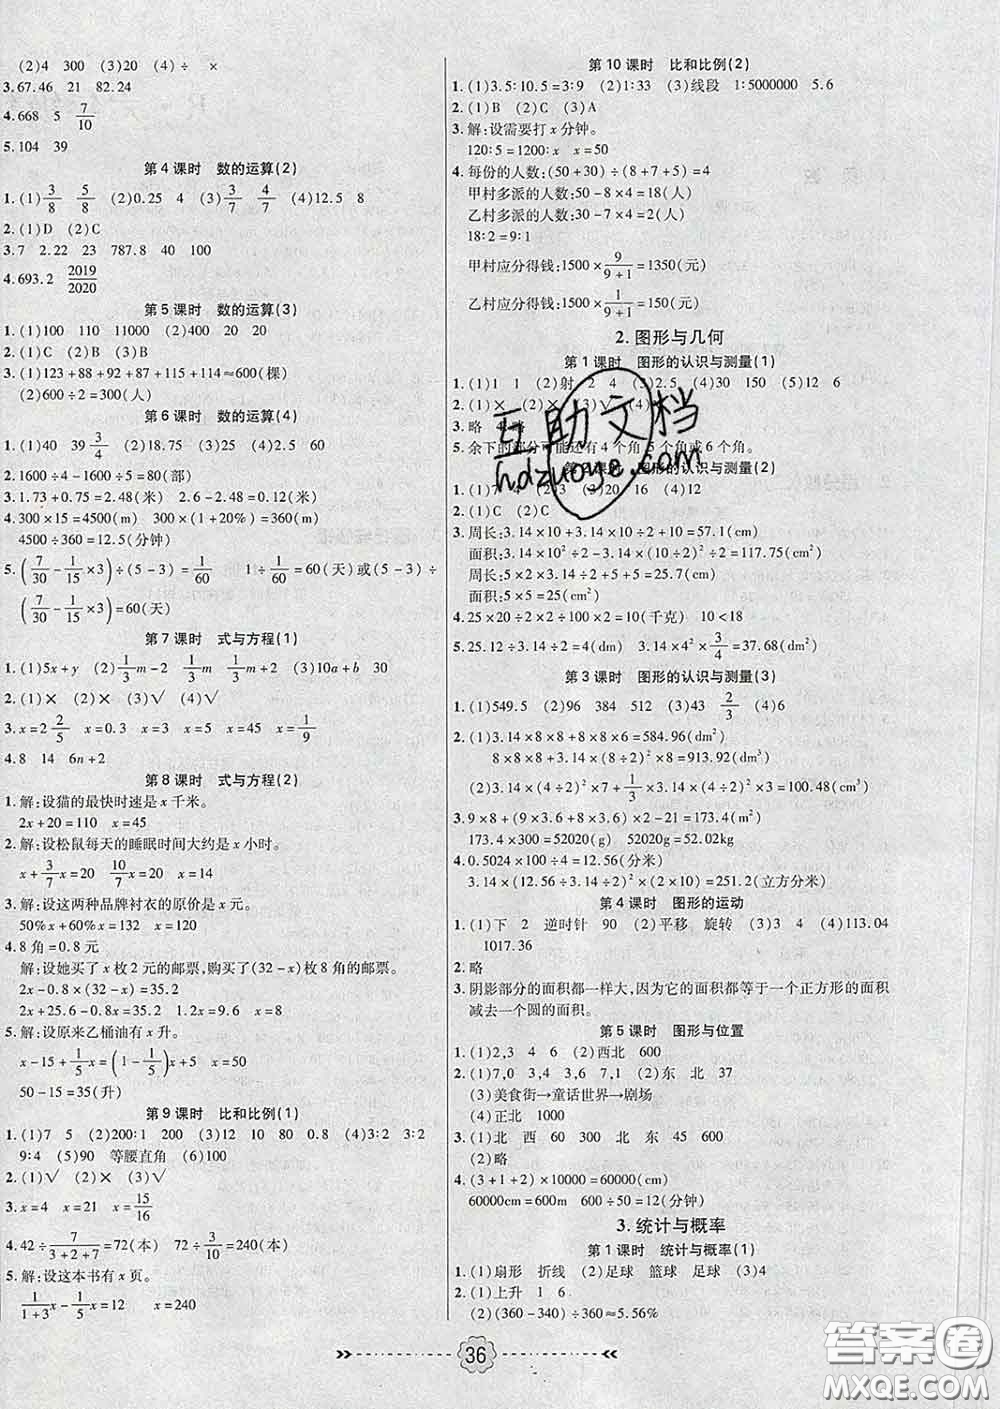 (2)4 300 (3)20 (4)÷ ×
3.67.46 21 82.24
4.668 5 7/10
5.104 39
第4课时 数的运算(2)
1.(1)3/8 5/8 (2)0.25 4 (3)3/7 4/7 (4)12.5 8
2.(1)D (2)C
3.7 2.22 23 787.8 40 100
4.693.2 2019/2020
第5课时 数的运算(3)
1.(1)100 110 11000 (2)400 20 20
2.(1)C (2)C
3.(1)123+88+92+87+115+114≈600(棵)
(2)600÷2=300(人)
第6课时 数的运算(4)
1.(1)40 39 3/4 (2)18.75 (3)25 (4)25
2.1600÷4-1600÷5=80(部)
3.1.73+0.75=2.48(米) 2.6-2.48=0.12(米)
4.300×15=4500(m) 300×(1+20%)=360(m)
4500÷360=12.5(分钟)
5.(7/30-1/15×3)÷(5-3)=1/60 1÷1/60=60(天)或(5-3)÷
(7/30-1/15×3)=60(天)
第7课时 式与方程(1)
1.(1)5x+y (2)1/3m-2 1/3m 1/3m+2 (3)10a+b 30
2.(1)× (2)× (3)√ (4)√
3.x=2 2/5 x=0.3 x=3 x=5 x=45 x=1/9
4.8 14 6n+2
第8课时 式与方程(2)
1.解:设猫的最快时速是x千米。
2x+20=110 x=45
2.解:设松鼠每天的睡眠时间大约是x小时。
x+3/7x=20 10/7x=20 x=14
3.解:设这两种品牌衬衣的原价是x元。
50%x+60%x=132 x=120
4.8角=0.8元
解:设她买了x枚2元的邮票,购买了(32-x)枚8角的邮票。
2x-0.8×(32-x)=8
2x+25.6-0.8x=8 1.2x=9.6 x=8
5.解:设原来乙桶油有x升。
x-15+1/5x=(1-1/5)x+5 x=50
50-15=35(升)
第9课时 比和比例(1)
1.(1)7 5 (2)200∶1 200 (3)12 10 80 0.8 (4)3∶2 3∶2
9∶4 (5)90 等腰直角 (6)100
2.(1)√ (2)× (3)√
3.x=4 x=21 x=15/16
4.42÷7/(3+2+7)=72(本) 72÷3/10=240(本)
5.解:设这本书有x页。
1/(1+3)x-1/5x=12 x=240
第10课时 比和比例(2)
1.(1)3.5∶10.5=3∶9 (2)1∶33 (3)线段 1∶5000000 5.6
2.(1)B (2)C (3)A
3.解:设需要打x分钟。
120∶5=1200∶x x=50
4.每份的人数:(50+30)÷(8+7+5)=4(人)
甲村多派的人数:50-8×4=18(人)
乙村多派的人数:30-7×4=2(人)
18∶2=9∶1
甲村应分得钱:1500×9/(9+1)=1350(元)
乙村应分得钱:1500×1/(9+1)=150(元)
2.图形与几何
第1课时 图形的认识与测量(1)
1.(1)1 1 (2)射 2 4 (3)2.5 (4)30 150 (5)12 6
2.(1)× (2)× (3)√ (4)
3.略 4.略
5.余下的部分可能还有4个角、5个角或6个角。
第2课时 图形的认识与测量(2)
1.(1)7 4 (2)3 (3)20 16 (4)12
2.(1)C (2)C
3.周长:3.14×10+3.14×10÷2+10=57.1(cm)
面积:3.14×(10÷2)²+3.14×10²÷2=117.75(cm²)
周长:5×2×3.14÷2+5+5=25.7(cm)
面积:5×5=25(cm²)
4.25×20÷2×2÷100×2=10(千克) 10<18
5.25.12÷3.14÷2=4(dm) 3.14×4²×3/4=37.68(dm²)
第3课时 图形的认识与测量(3)
1.(1)549.5 (2)96 384 512 (3)43 2/3 (4)6
2.(1)3.14×8×8+8×8×6=584.96(dm²)
8×8×8+3.14×(8÷2)²×8=913.92(dm³)
(2)3.14×(4÷2)²×7+1/3×3.14×(4÷2)²×3=100.48(cm³)
3.9×8+(9×3.6+8×3.6)×2-21=173.4(m²)
173.4×300=52020(g) 52020g=52.02kg
4.0.5024×100÷4=12.56(分米)
3.14×(12.56÷3.14÷2)²×(2×10)=251.2(立方分米)
第4课时 图形的运动
1.(1)下 2 逆时针 90 (2)平移 旋转 (3)3 4 (4)113.04
1017.36
2.略
3.阴影部分的面积都一样大,因为它的面积都等于一个正方形的面积
减去一个圆的面积。
第5课时 图形与位置
1.(1)2,3 4 6 (2)西北 600
2.(1)7,0 3,4 3,6 7,1 (2)东 北 37
(3)美食街→童话世界→剧场
(4)正北 1000
3.(1)北 西 60 300 北 东 45 600
(2)略
4.(3+1+2)×10000=60000(cm)
60000cm=600m 600÷50=12(分钟)
3.统计与概率
第1课时 统计与概率(1)
1.(1)扇形 折线 (2)足球 篮球 足球 (3)4
2.(1)上升 1 6
(2)(360-340)÷360≈5.56%
36
互助文档
hdzuoye.com
答案圈
MXQE.COM